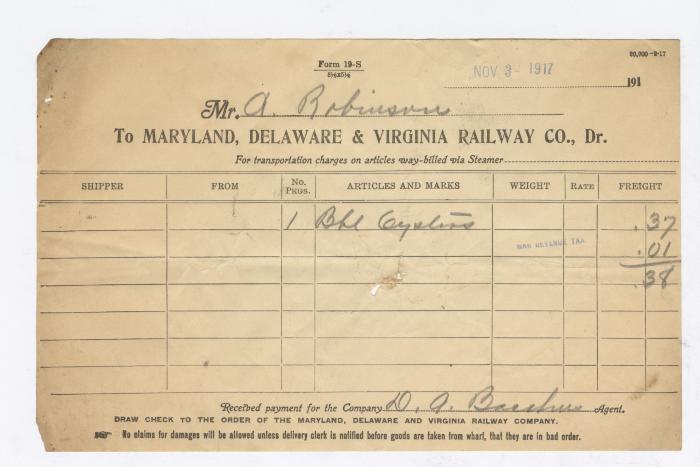 Form 19-S
8½x5½
80,000-8-17
NOV 3 - 1917
191
Mr. A. Robinson
To MARYLAND, DELAWARE & VIRGINIA RAILWAY CO., Dr.
For transportation charges on articles way-billed via Steamer
SHIPPER FROM No. PKGS. ARTICLES AND MARKS WEIGHT RATE FREIGHT
1 Bbl Oysters .37
WAR REVENUE TAX .01
.38
Received payment for the Company D. A. Agent.
DRAW CHECK TO THE ORDER OF THE MARYLAND, DELAWARE AND VIRGINIA RAILWAY COMPANY.
No claims for damages will be allowed unless delivery clerk is notified before goods are taken from wharf, that they are in bad order.